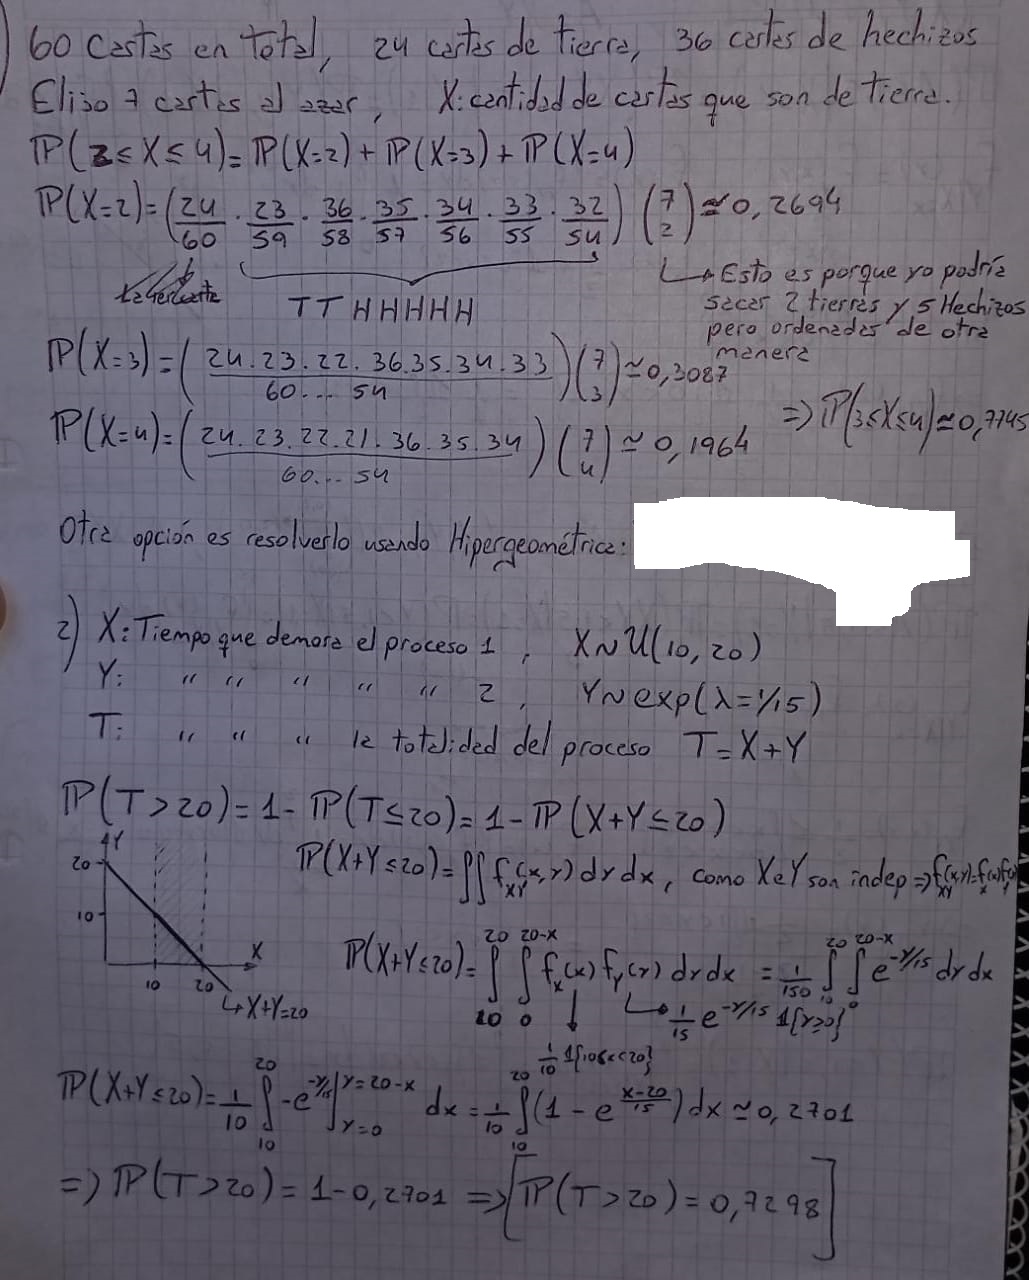 60 Cartas en total, 24 cartas de tierra, 36 cartas de hechizos
Elijo 7 cartas al azar, X: cantidad de cartas que son de tierra.
ℙ(2≤X≤4)= ℙ(X=2) + ℙ(X=3) + ℙ(X=4)
ℙ(X=2)= (24/60 · 23/59 · 36/58 · 35/57 · 34/56 · 33/55 · 32/54) (7 2) ≃ 0,2694
↳ Esto es porque yo podría
T T H H H H H sacar 2 tierras y 5 Hechizos
pero ordenadas de otra
manera
ℙ(X=3) = (24.23.22.36.35.34.33 / 60... 54) (7 3) ≃ 0,3087
=> ℙ(3≤X≤4) ≃ 0,7745
ℙ(X=4) = (24.23.22.21.36.35.34 / 60... 54) (7 4) ≃ 0,1964
Otra opción es resolverlo usando Hipergeométrica:
2) X: Tiempo que demora el proceso 1, X~U(10,20)
Y: " " " " " 2, Y~exp(λ=1/15)
T: " " " la totalidad del proceso T=X+Y
ℙ(T>20)= 1- ℙ(T≤20)= 1- ℙ(X+Y≤20)
Y
20
10
X
10 20
↳ X+Y=20
ℙ(X+Y≤20)= ∬ f_XY(x,y) dy dx, como X e Y son indep => f_XY(x,y)=f_X(x)f_Y(y)
ℙ(X+Y≤20)= ∫_10^20 ∫_0^20-x f_X(x) f_Y(y) dy dx = 1/150 ∫_10^20 ∫_0^20-x e^-y/15 dy dx
↳ 1/15 e^-y/15 1{y≥0}
1/10 1{10<x<20}
ℙ(X+Y≤20)= 1/10 ∫_10^20 -e^-y/15 |_y=0^y=20-x dx = 1/10 ∫_10^20 (1 - e^(x-20)/15) dx ≃ 0,2701
=> ℙ(T>20) = 1-0,2701 => [ℙ(T>20) = 0,7298]